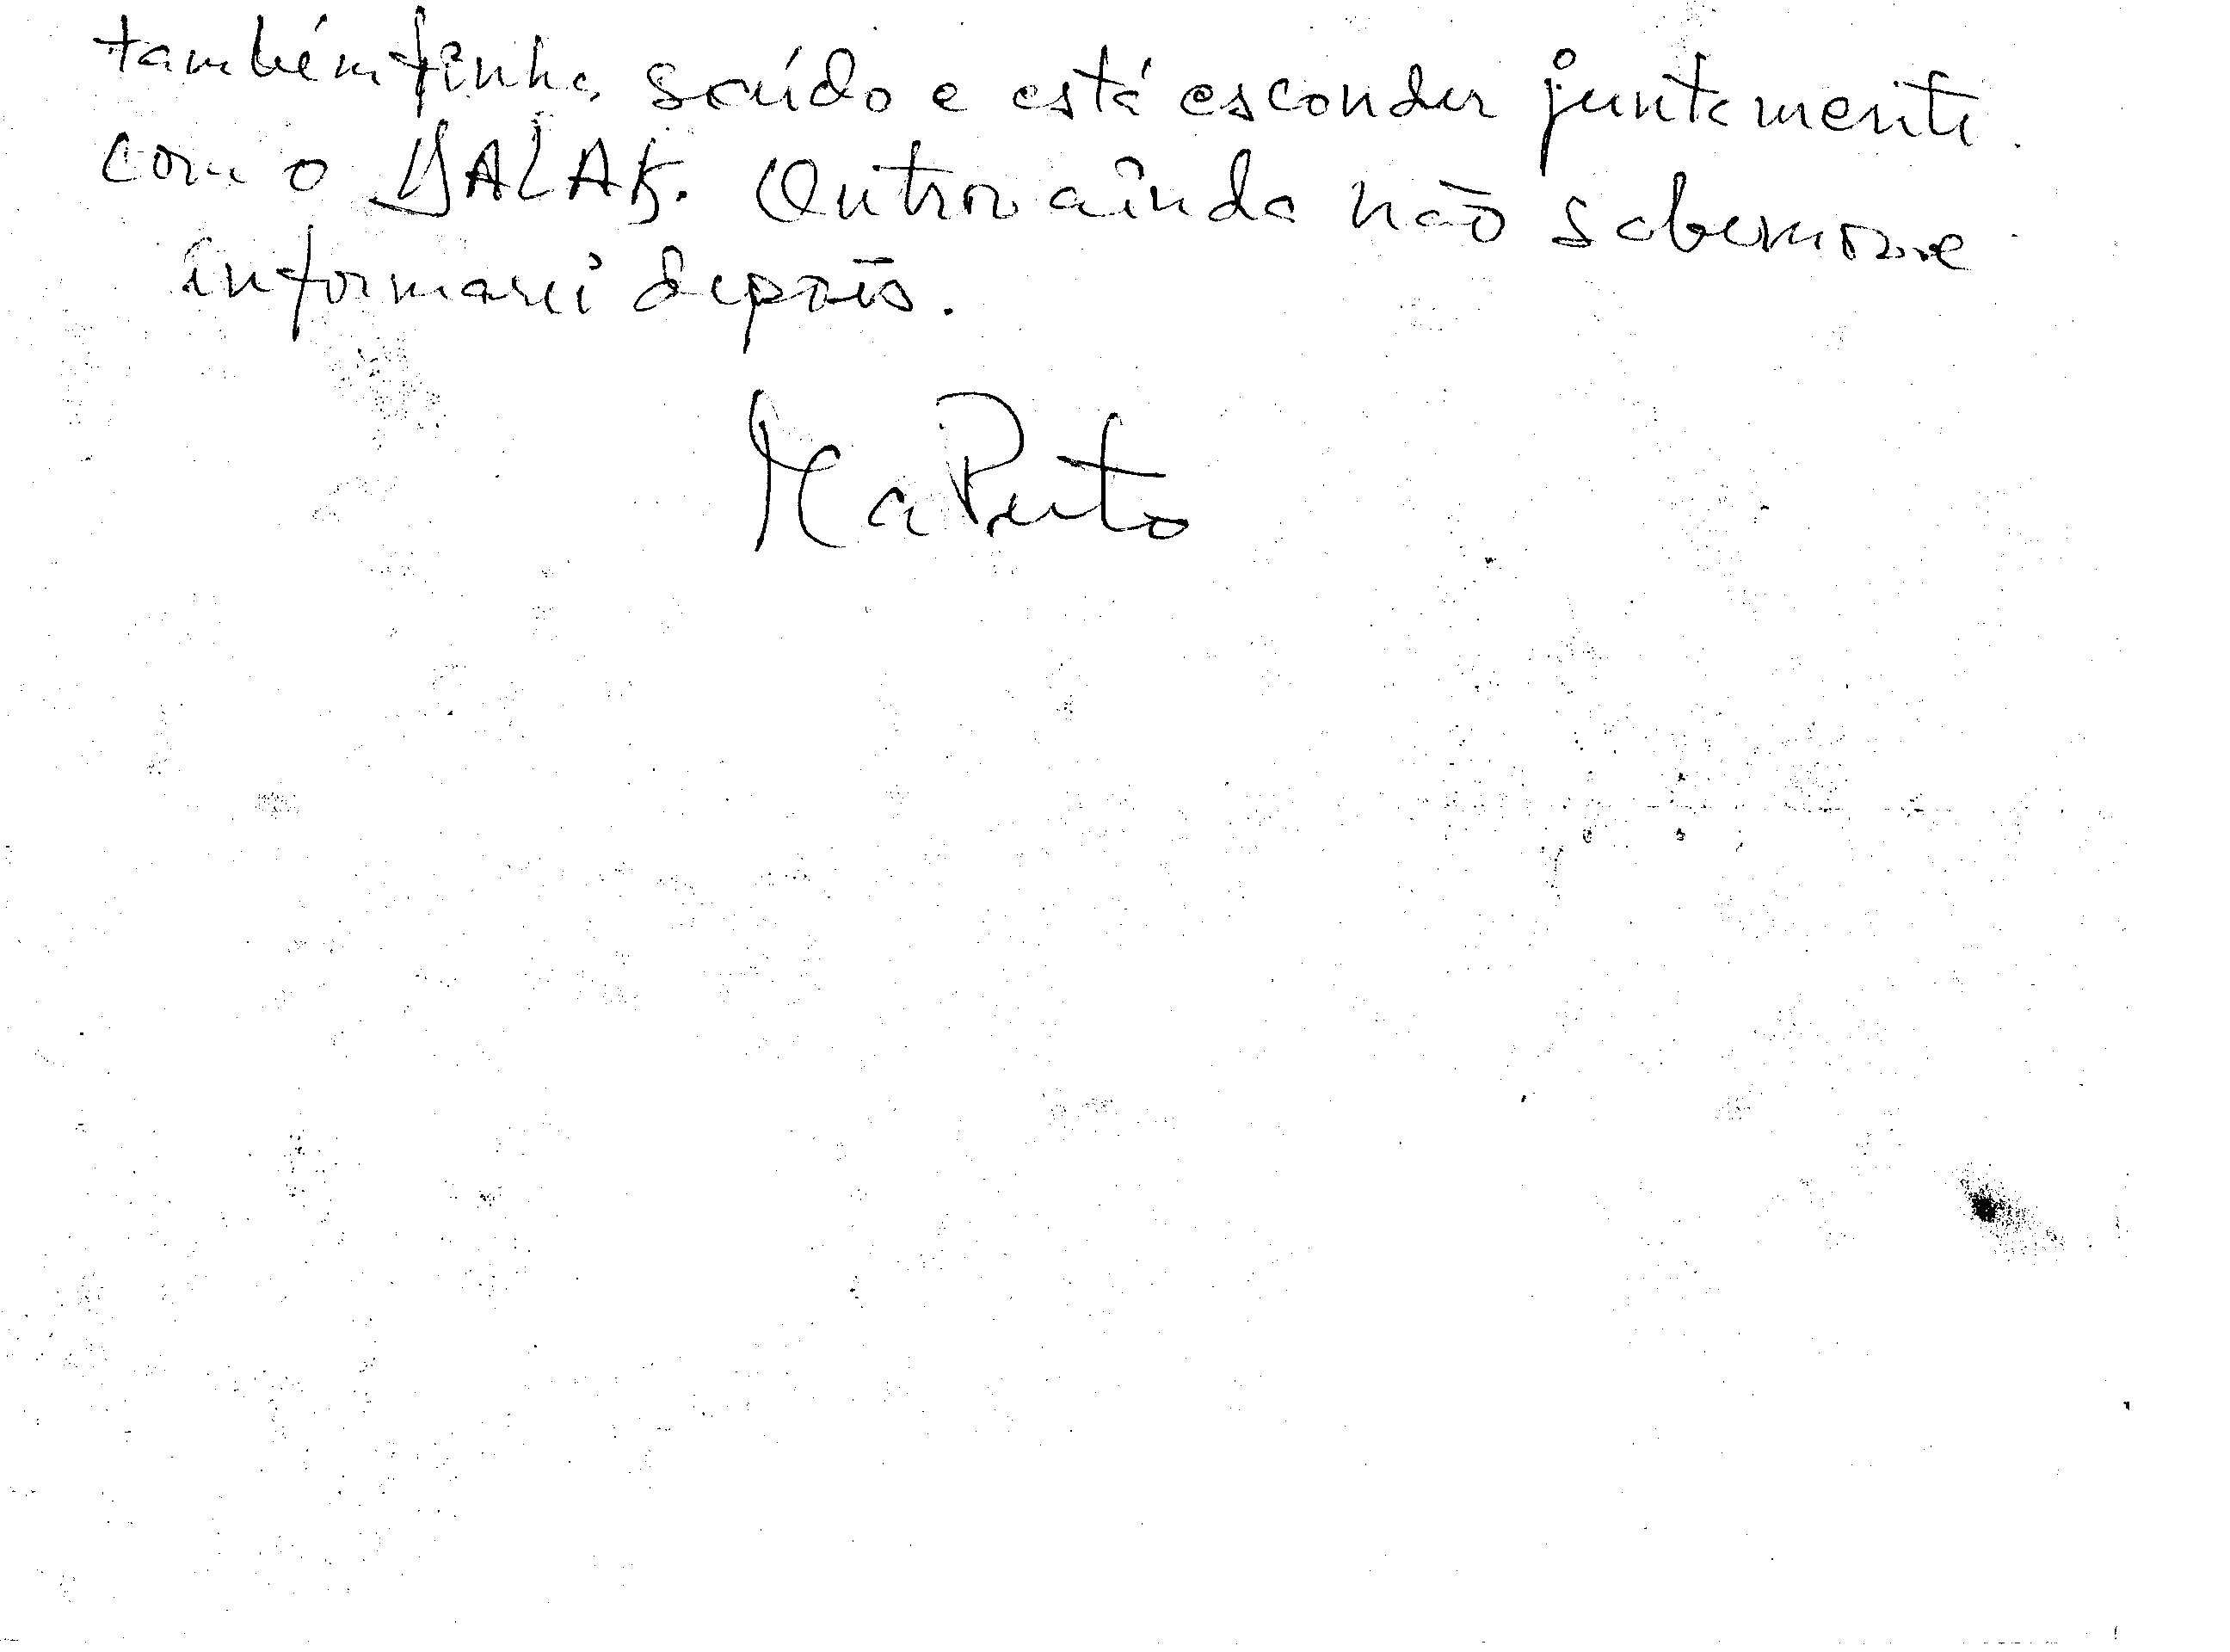 também tinha saído e está esconder juntamente
com o DALAK. Outros ainda não sabemos e
informarei depois.